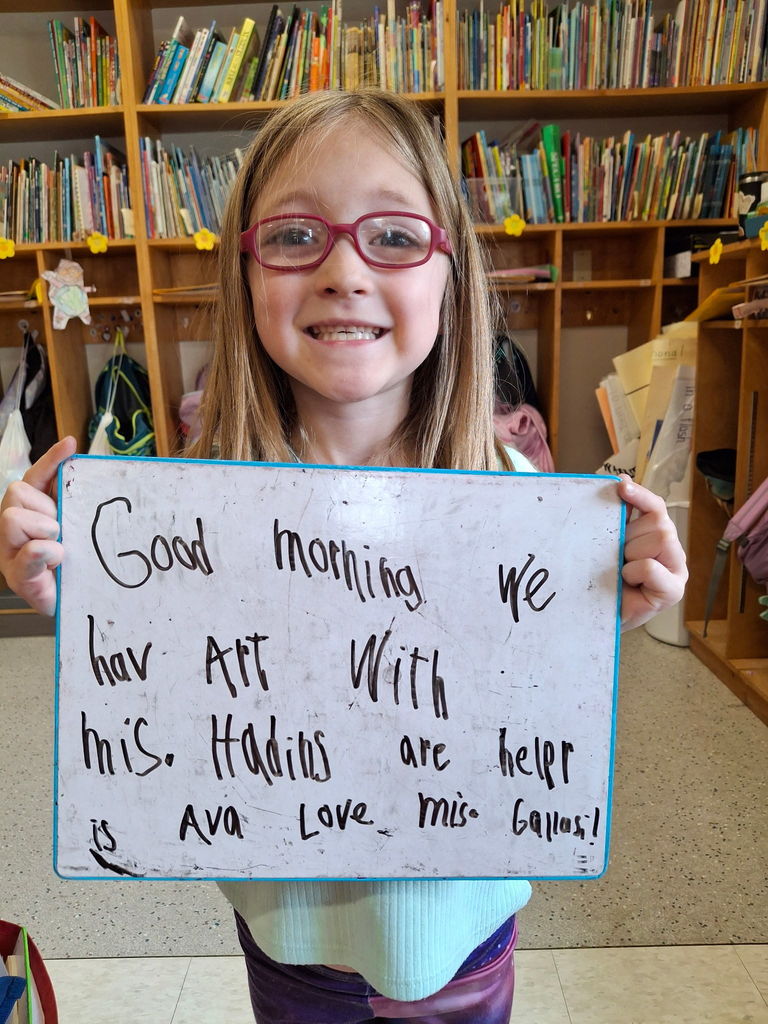 Good morning we
hav Art With
mis. Hadins are helpr
is Ava Love mis. Gallasi!